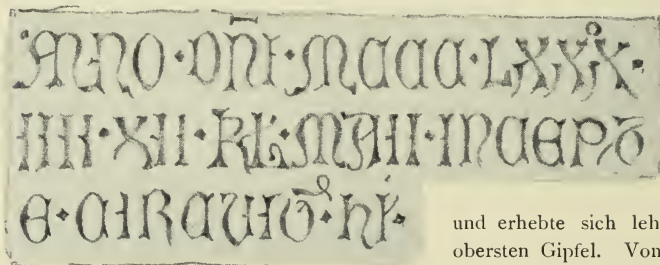 ANNO·DN̄I·MCCC·LXX°X·
IIII·XII·KL·MAII·INCEPT̄
E·CIRCVIT᾿·HI᾿·
und erhebte sich leh
obersten Gipfel. Von